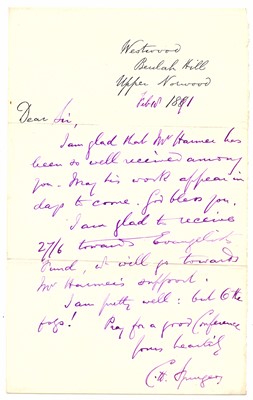 Westwood
Beulah Hill
Upper Norwood
Feb 18 1891
Dear Sir,
I am glad that Mr Harmer has
been so well received among
you. May his work appear in
days to come. God bless you.
I am glad to receive
27/6 towards Evangelists
Fund, it will go towards
Mr Harmer's support.
I am pretty well: but to the
fogs! Pray for a good Conference
Yours heartily
C. H. Spurgeon